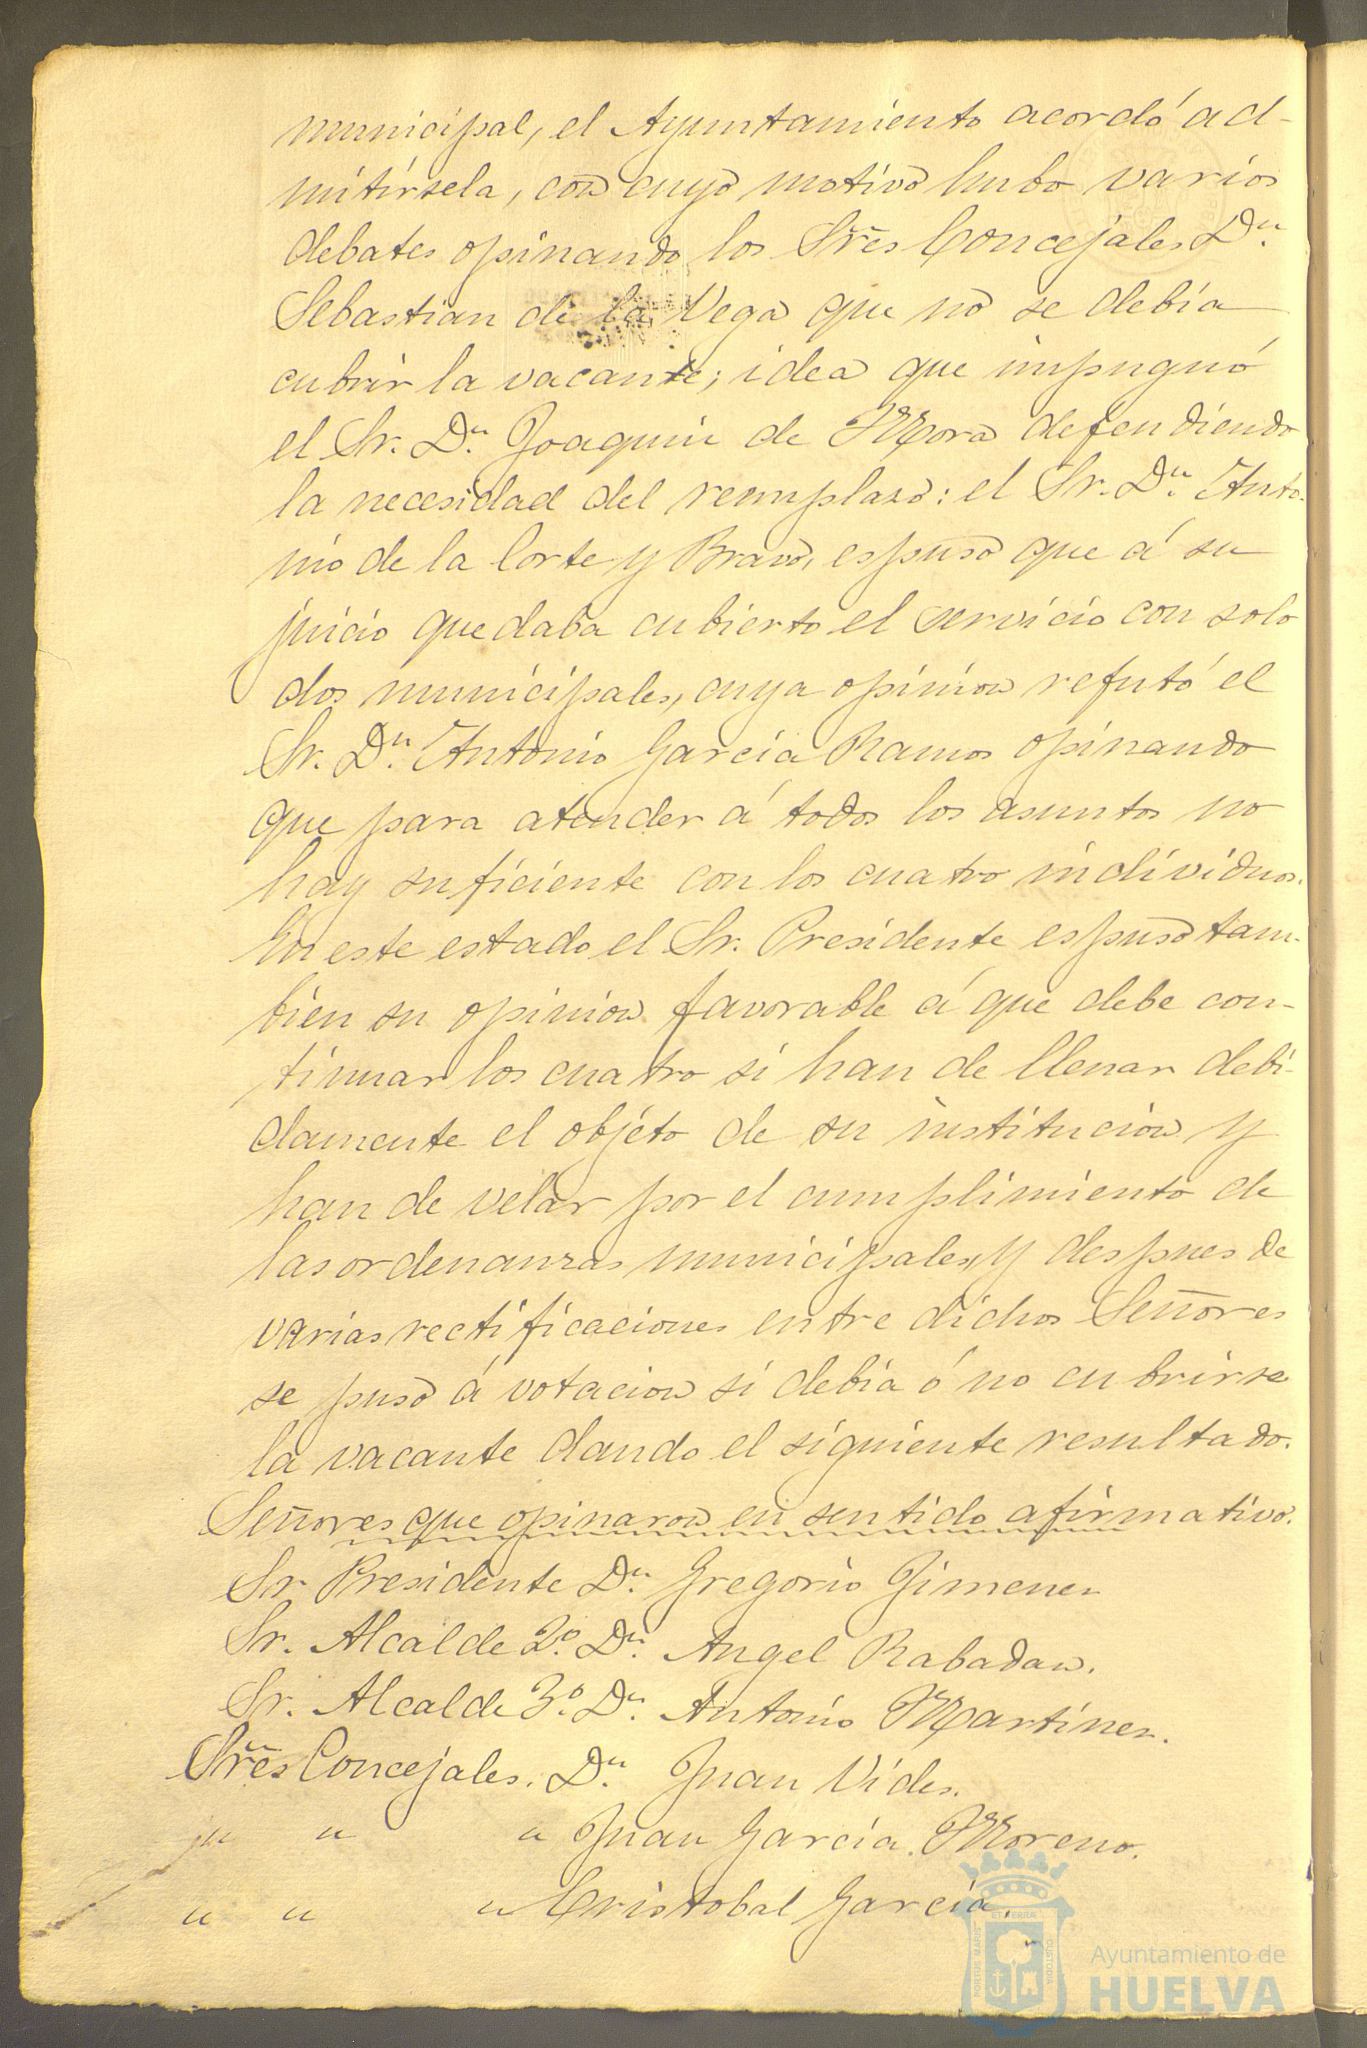 municipal, el Ayuntamiento acordó ad-
mitírsela, con cuyo motivo hubo varios
debates opinando los Sres Concejales Dn.
Sebastian de la Vega que no se debía
cubrir la vacante; idea que impugnó
el Sr. Dn. Joaquin de Mora defendiendo
la necesidad del remplazo: el Sr. Dn. Anto-
nio de la Corte y Bravo, espuso que á su
juicio quedaba cubierto el servicio con solo
dos municipales, cuya opinion refutó el
Sr. Dn. Antonio García Ramos opinando
que para atender á todos los asuntos no
hay suficiente con los cuatro individuos.
En este estado el Sr. Presidente espuso tam-
bien su opinion favorable á que debe con-
tinuar los cuatro si han de llenar debi-
damente el objéto de su institucion y
han de velar por el cumplimiento de
las ordenanzas municipales, y despues de
varias rectificaciones entre dichos Señores
se puso á votacion si debía ó no cubrirse
la vacante dando el siguiente resultado.
Señores que opinaron en sentido afirmativo.
Sr Presidente Dn. Gregorio Jimenez
Sr. Alcalde 2º. Dn. Angel Rabadan.
Sr. Alcalde 3º. Dn. Antonio Martinez.
Sres Concejales. Dn. Juan Vides.
" " " Juan García Moreno.
" " " Cristobal García.
PORTUS MARIS ET TERRAE CUSTODIA
Ayuntamiento de
HUELVA